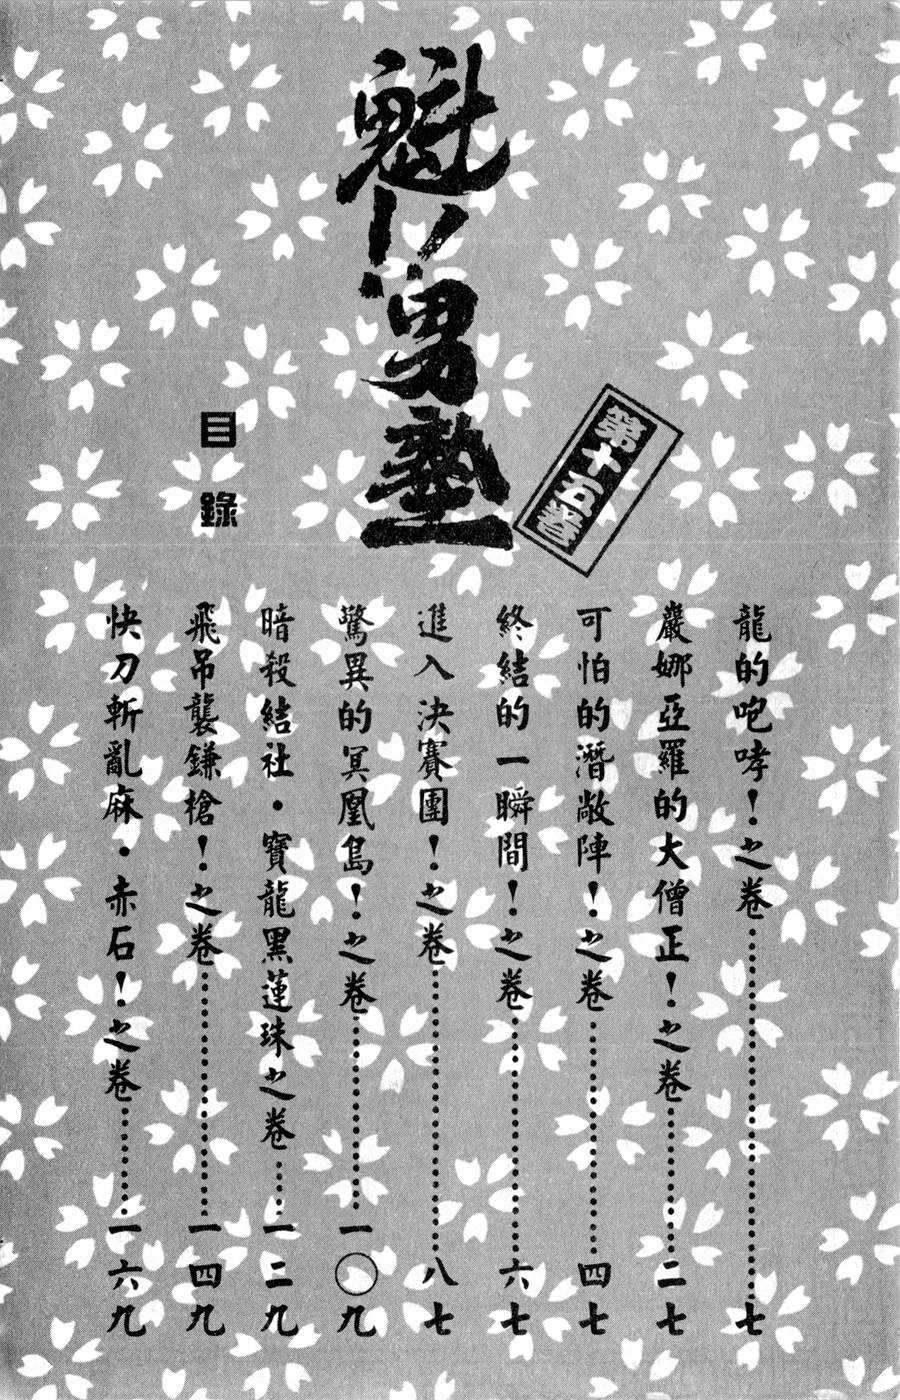 魁!!男塾
第十五卷
目錄
龍的咆哮!之卷……七
嚴娜亞羅的大僧正!之卷……二七
可怕的潛敵陣!之卷……四七
終結的一瞬間!之卷……六七
進入決賽團!之卷……八七
驚異的冥凰島!之卷……一〇九
暗殺結社・寶龍黑蓮珠之卷……一二九
飛吊襲鎌槍!之卷……一四九
快刀斬亂麻・赤石!之卷……一六九